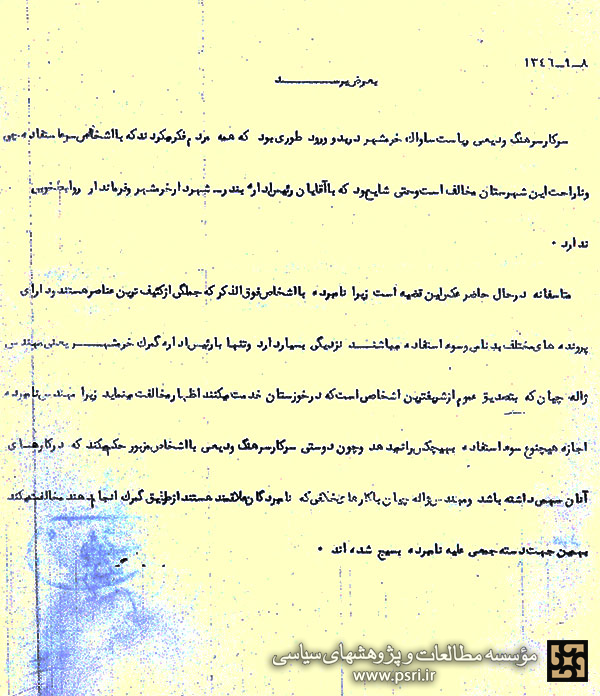 ۸_۱_۱۳٤٦
بعرض میرســـــــــاند
سرکار سرهنگ ودیعی ریاست ساواک خرمشهر در بدو ورود طوری بود که همه مردم فکر میکردند که با اشخاص سوء استفاده چی
و ناراحت این شهرستان مخالف است و حتی شایع بود که با آقایان رئیس اداره بندر ــ شهردار خرمشهر و فرماندار روابط خوبی
ندارد ۰
متاسفانه در حال حاضر عکس این قضیه است زیرا نامبرده با اشخاص فوق الذکر که جملگی از کثیف ترین عناصر هستند و دارای
پرونده های مختلف بدنامی و سوء استفاده میباشنــد نزدیکی بسیار دارد و تنها با رئیس اداره گمرک خرمشهـــــر یعنی مهندس
ژاله جهان که بتصدیق عموم از شریفترین اشخاصی است که در خوزستان خدمت میکنند اظهار مخالفت مینماید زیرا مهندس نامبرده
اجازه هیچنوع سوء استفاده بهیچکس را نمیدهد و چون دوستی سرکار سرهنگ ودیعی با اشخاص مزبور حکم میکند که در کارهـــای
آنان سهمی داشته باشد و مهندس ژاله جهان با کارهای خلافی که نامبردگان علاقمند هستند از طریق گمرک انجام دهند مخالفت میکند
بهمین جهت دسته جمعی علیه نامبرده بسیج شده اند ۰
مؤسسه مطالعات و پژوهشهای سیاسی
www.psri.ir